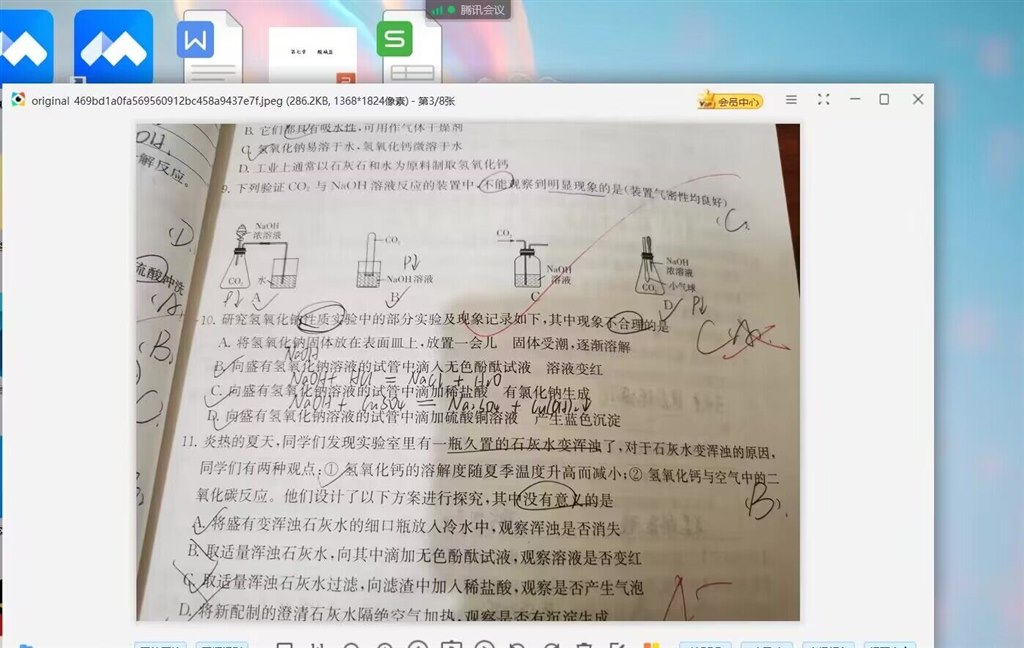 腾讯会议
W
S
original 469bd1a0fa569560912bc458a9437e7f.jpeg (286.2KB, 1368*1824像素) - 第3/8张
会员中心
B. 它们都具有吸水性,可用作气体干燥剂
C. 氢氧化钠易溶于水,氢氧化钙微溶于水
D. 工业上通常以石灰石和水为原料制取氢氧化钙
解反应。
9. 下列验证 CO₂ 与 NaOH 溶液反应的装置中,不能观察到明显现象的是(装置气密性均良好)
C
D
NaOH
浓溶液
CO₂
水
A
P↓
CO₂
NaOH 溶液
B
P↓
CO₂
NaOH
溶液
C
NaOH
浓溶液
小气球
CO₂
D
P↓
硫酸冲洗
A
B
C
10. 研究氢氧化钠性质实验中的部分实验及现象记录如下,其中现象不合理的是
C
A. 将氢氧化钠固体放在表面皿上,放置一会儿 固体受潮,逐渐溶解
NaOH
B. 向盛有氢氧化钠溶液的试管中滴入无色酚酞试液 溶液变红
NaOH + HCl = NaCl + H₂O
C. 向盛有氢氧化钠溶液的试管中滴加稀盐酸 有氯化钠生成
NaOH + CuSO₄ = Na₂SO₄ + Cu(OH)₂↓
D. 向盛有氢氧化钠溶液的试管中滴加硫酸铜溶液 产生蓝色沉淀
11. 炎热的夏天,同学们发现实验室里有一瓶久置的石灰水变浑浊了,对于石灰水变浑浊的原因,
同学们有两种观点:① 氢氧化钙的溶解度随夏季温度升高而减小;② 氢氧化钙与空气中的二
氧化碳反应。他们设计了以下方案进行探究,其中没有意义的是
B
A. 将盛有变浑浊石灰水的细口瓶放入冷水中,观察浑浊是否消失
B. 取适量浑浊石灰水,向其中滴加无色酚酞试液,观察溶液是否变红
C. 取适量浑浊石灰水过滤,向滤渣中加入稀盐酸,观察是否产生气泡
D. 将新配制的澄清石灰水隔绝空气加热,观察是否有沉淀生成